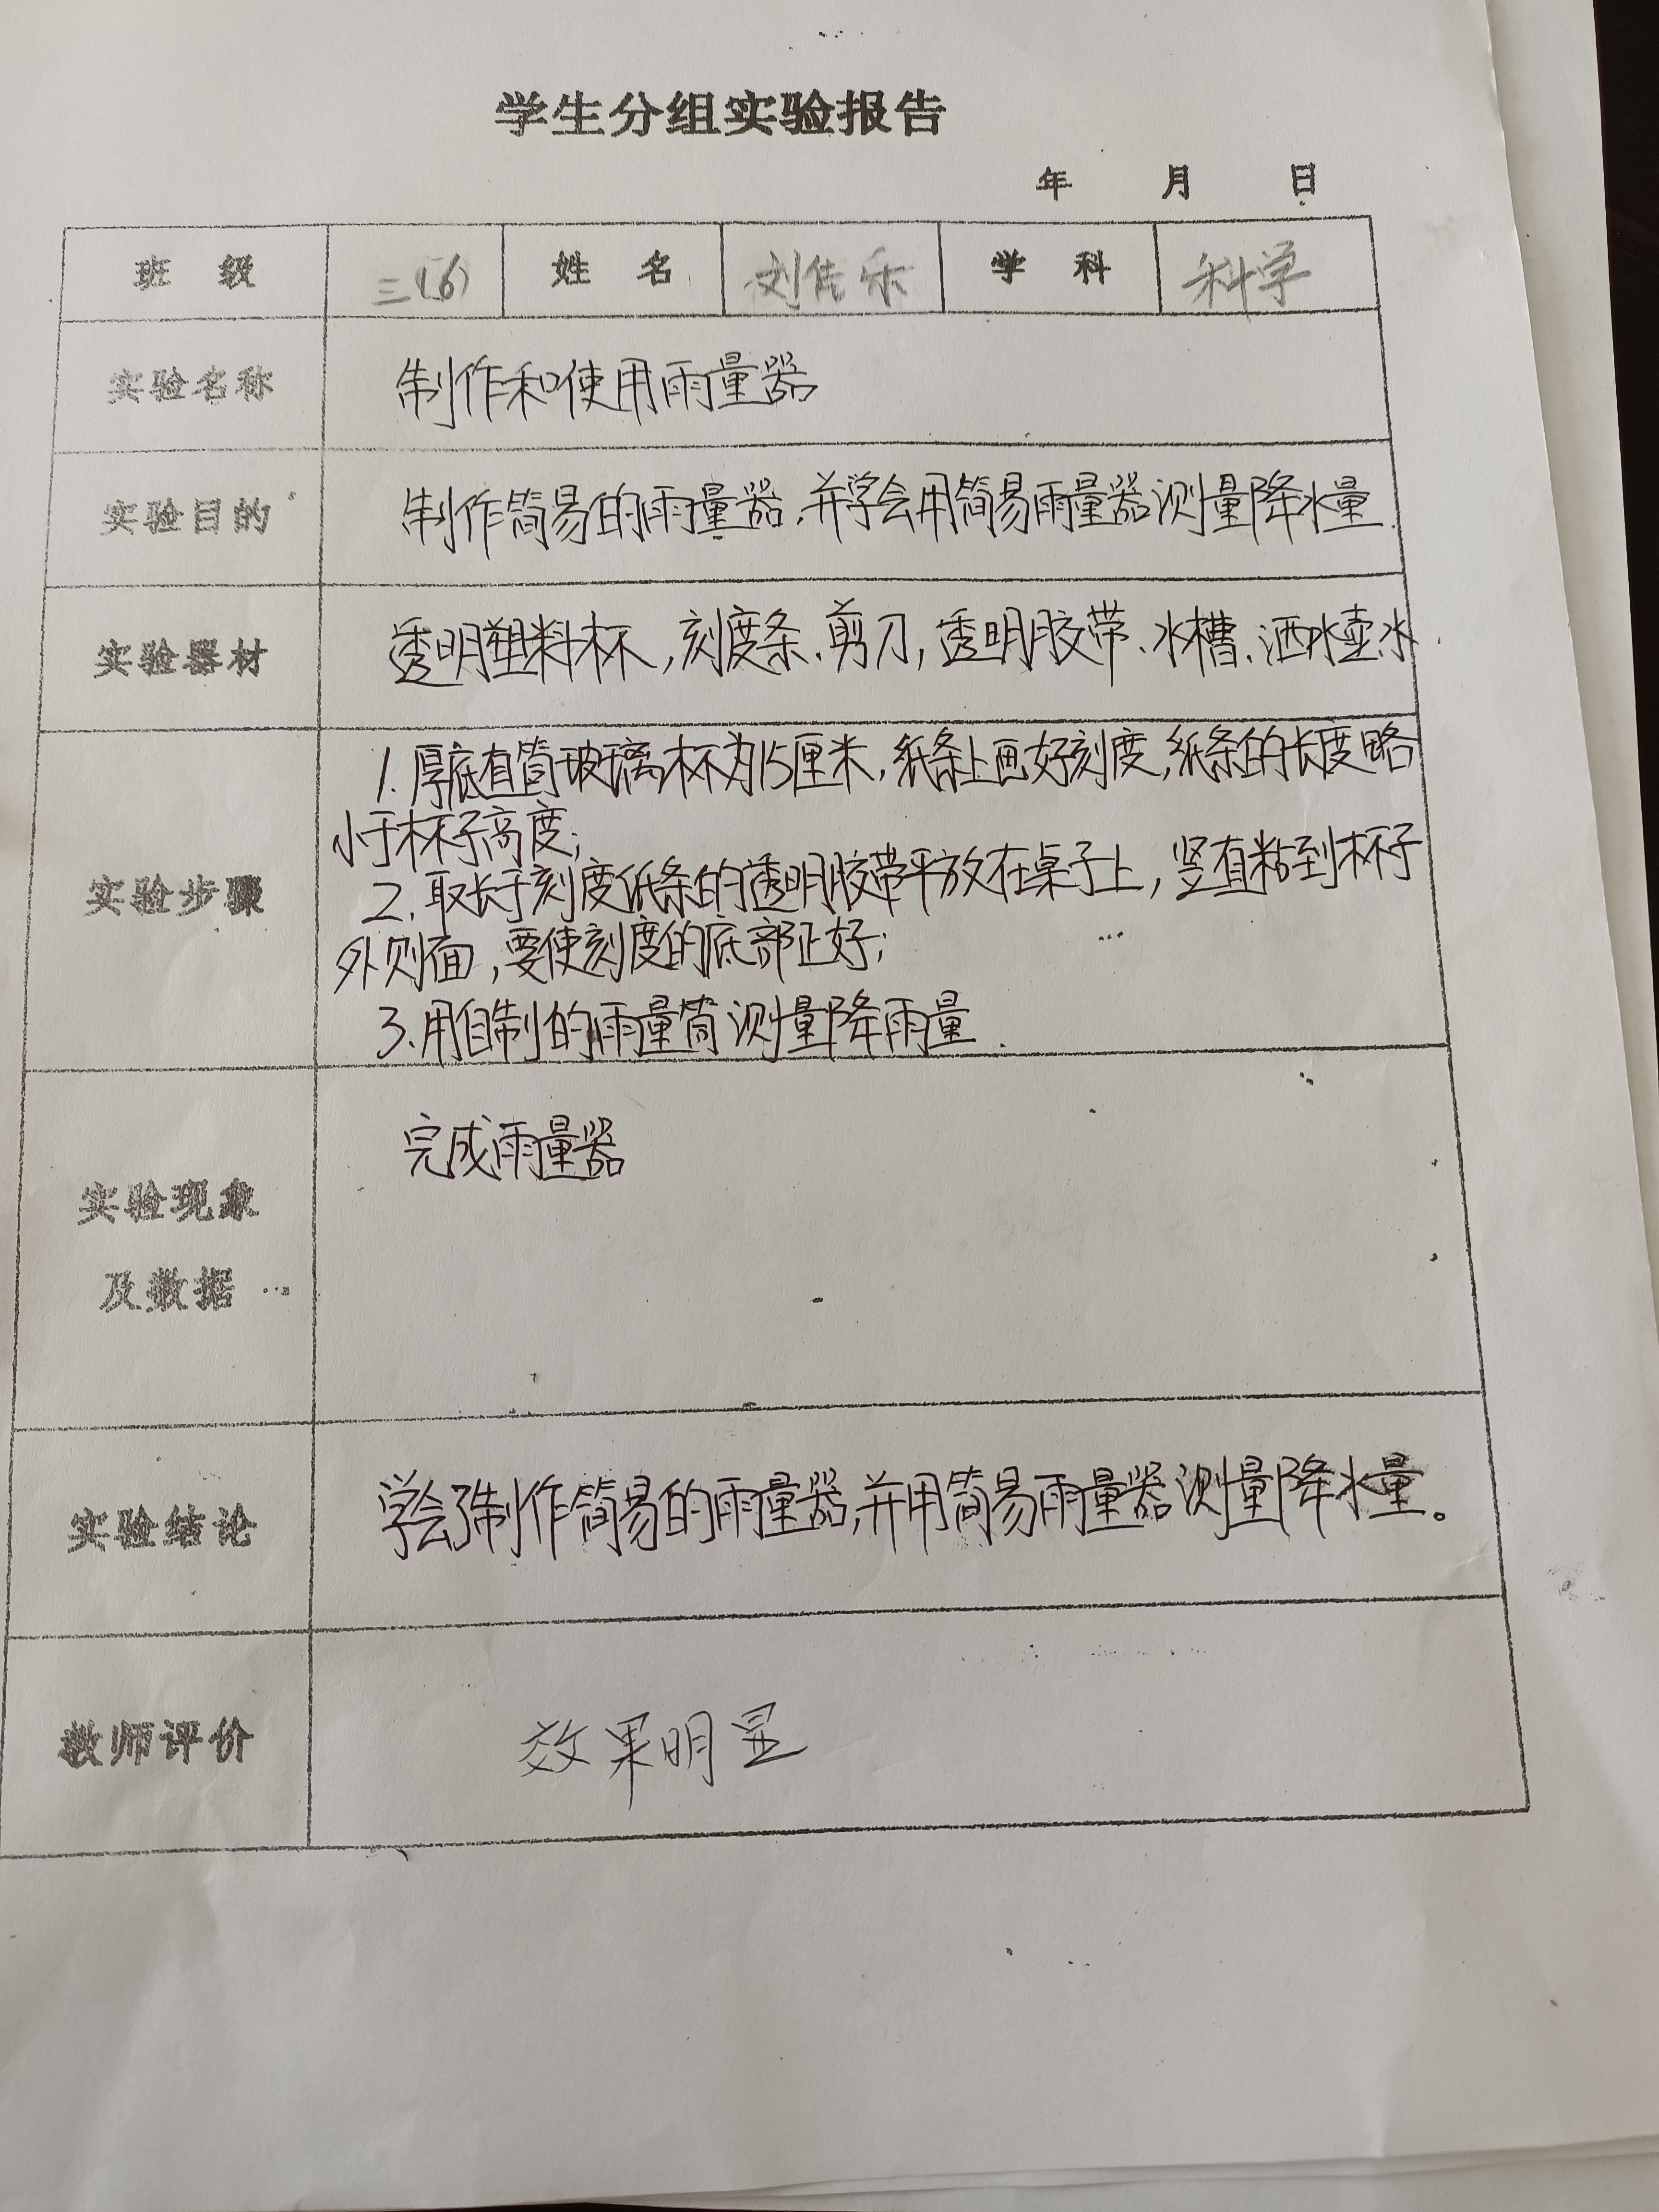 学生分组实验报告
年 月 日
班 级 三(6) 姓 名 刘佳乐 学 科 科学
实验名称 制作和使用雨量器
实验目的 制作简易的雨量器,并学会用简易雨量器测量降水量.
实验器材 透明塑料杯,刻度条、剪刀,透明胶带、水槽、洒水壶、水.
1.厚底直筒玻璃杯为15厘米,纸条上画好刻度,纸条的长度略
小于杯子高度;
实验步骤 2.取长于刻度纸条的透明胶带平放在桌子上,竖直粘到杯子
外侧面,要使刻度的底部正好;
3、用自制的雨量筒测量降雨量.
完成雨量器
实验现象
及数据
实验结论 学会了制作简易的雨量器,并用简易雨量器测量降水量。
教师评价 效果明显